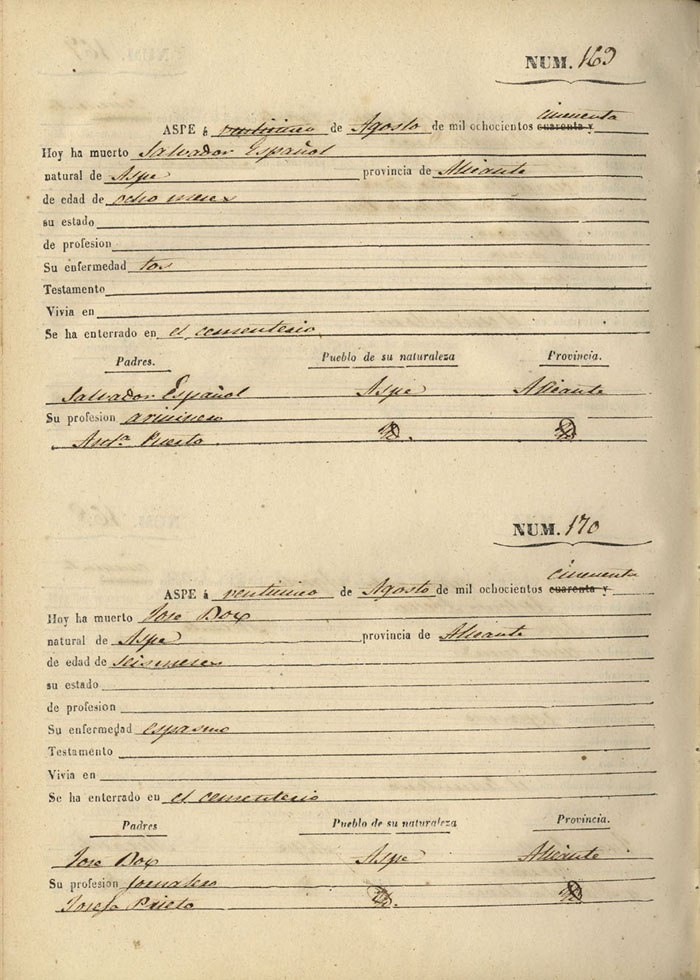 NUM. 169
cincuenta
ASPE á venticinco de Agosto de mil ochocientos cuarenta y
Hoy ha muerto Salvador Español
natural de Aspe provincia de Alicante
de edad de ocho meses
su estado
de profesion
Su enfermedad tos
Testamento
Vivia en
Se ha enterrado en el cementerio
Padres. Pueblo de su naturaleza Provincia.
Salvador Español Aspe Alicante
Su profesion
Ant.ª Puerto
NUM. 170
cincuenta
ASPE á venticinco de Agosto de mil ochocientos cuarenta y
Hoy ha muerto Jose Box
natural de Aspe provincia de Alicante
de edad de seis meses
su estado
de profesion
Su enfermedad espasmo
Testamento
Vivia en
Se ha enterrado en el cementerio
Padres Pueblo de su naturaleza Provincia.
Jose Box Aspe Alicante
Su profesion jornalero
Josefa Prieto